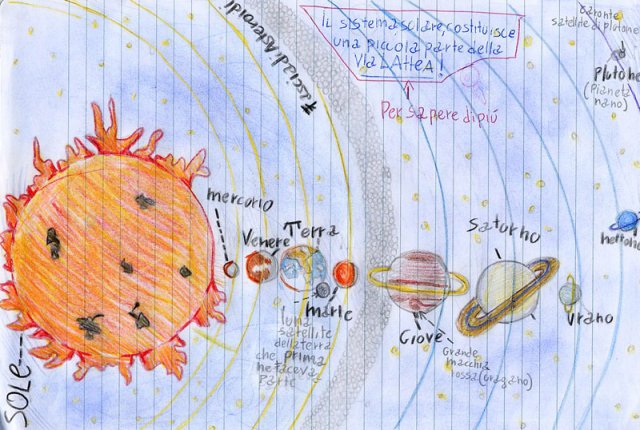 Fascia di Asteroidi
IL sistema solare, costituisce
una piccola parte della
VIA LATTEA!
Per sapere di più
caronte
satellite di plutone
plutone
(pianeta
nano)
mercorio
Venere
Terra
marte
luna
satellite
della terra
che prima
ne faceva
parte
Giove
Grande
macchia
rossa (uragano)
Saturno
Urano
nettuno
SOLE